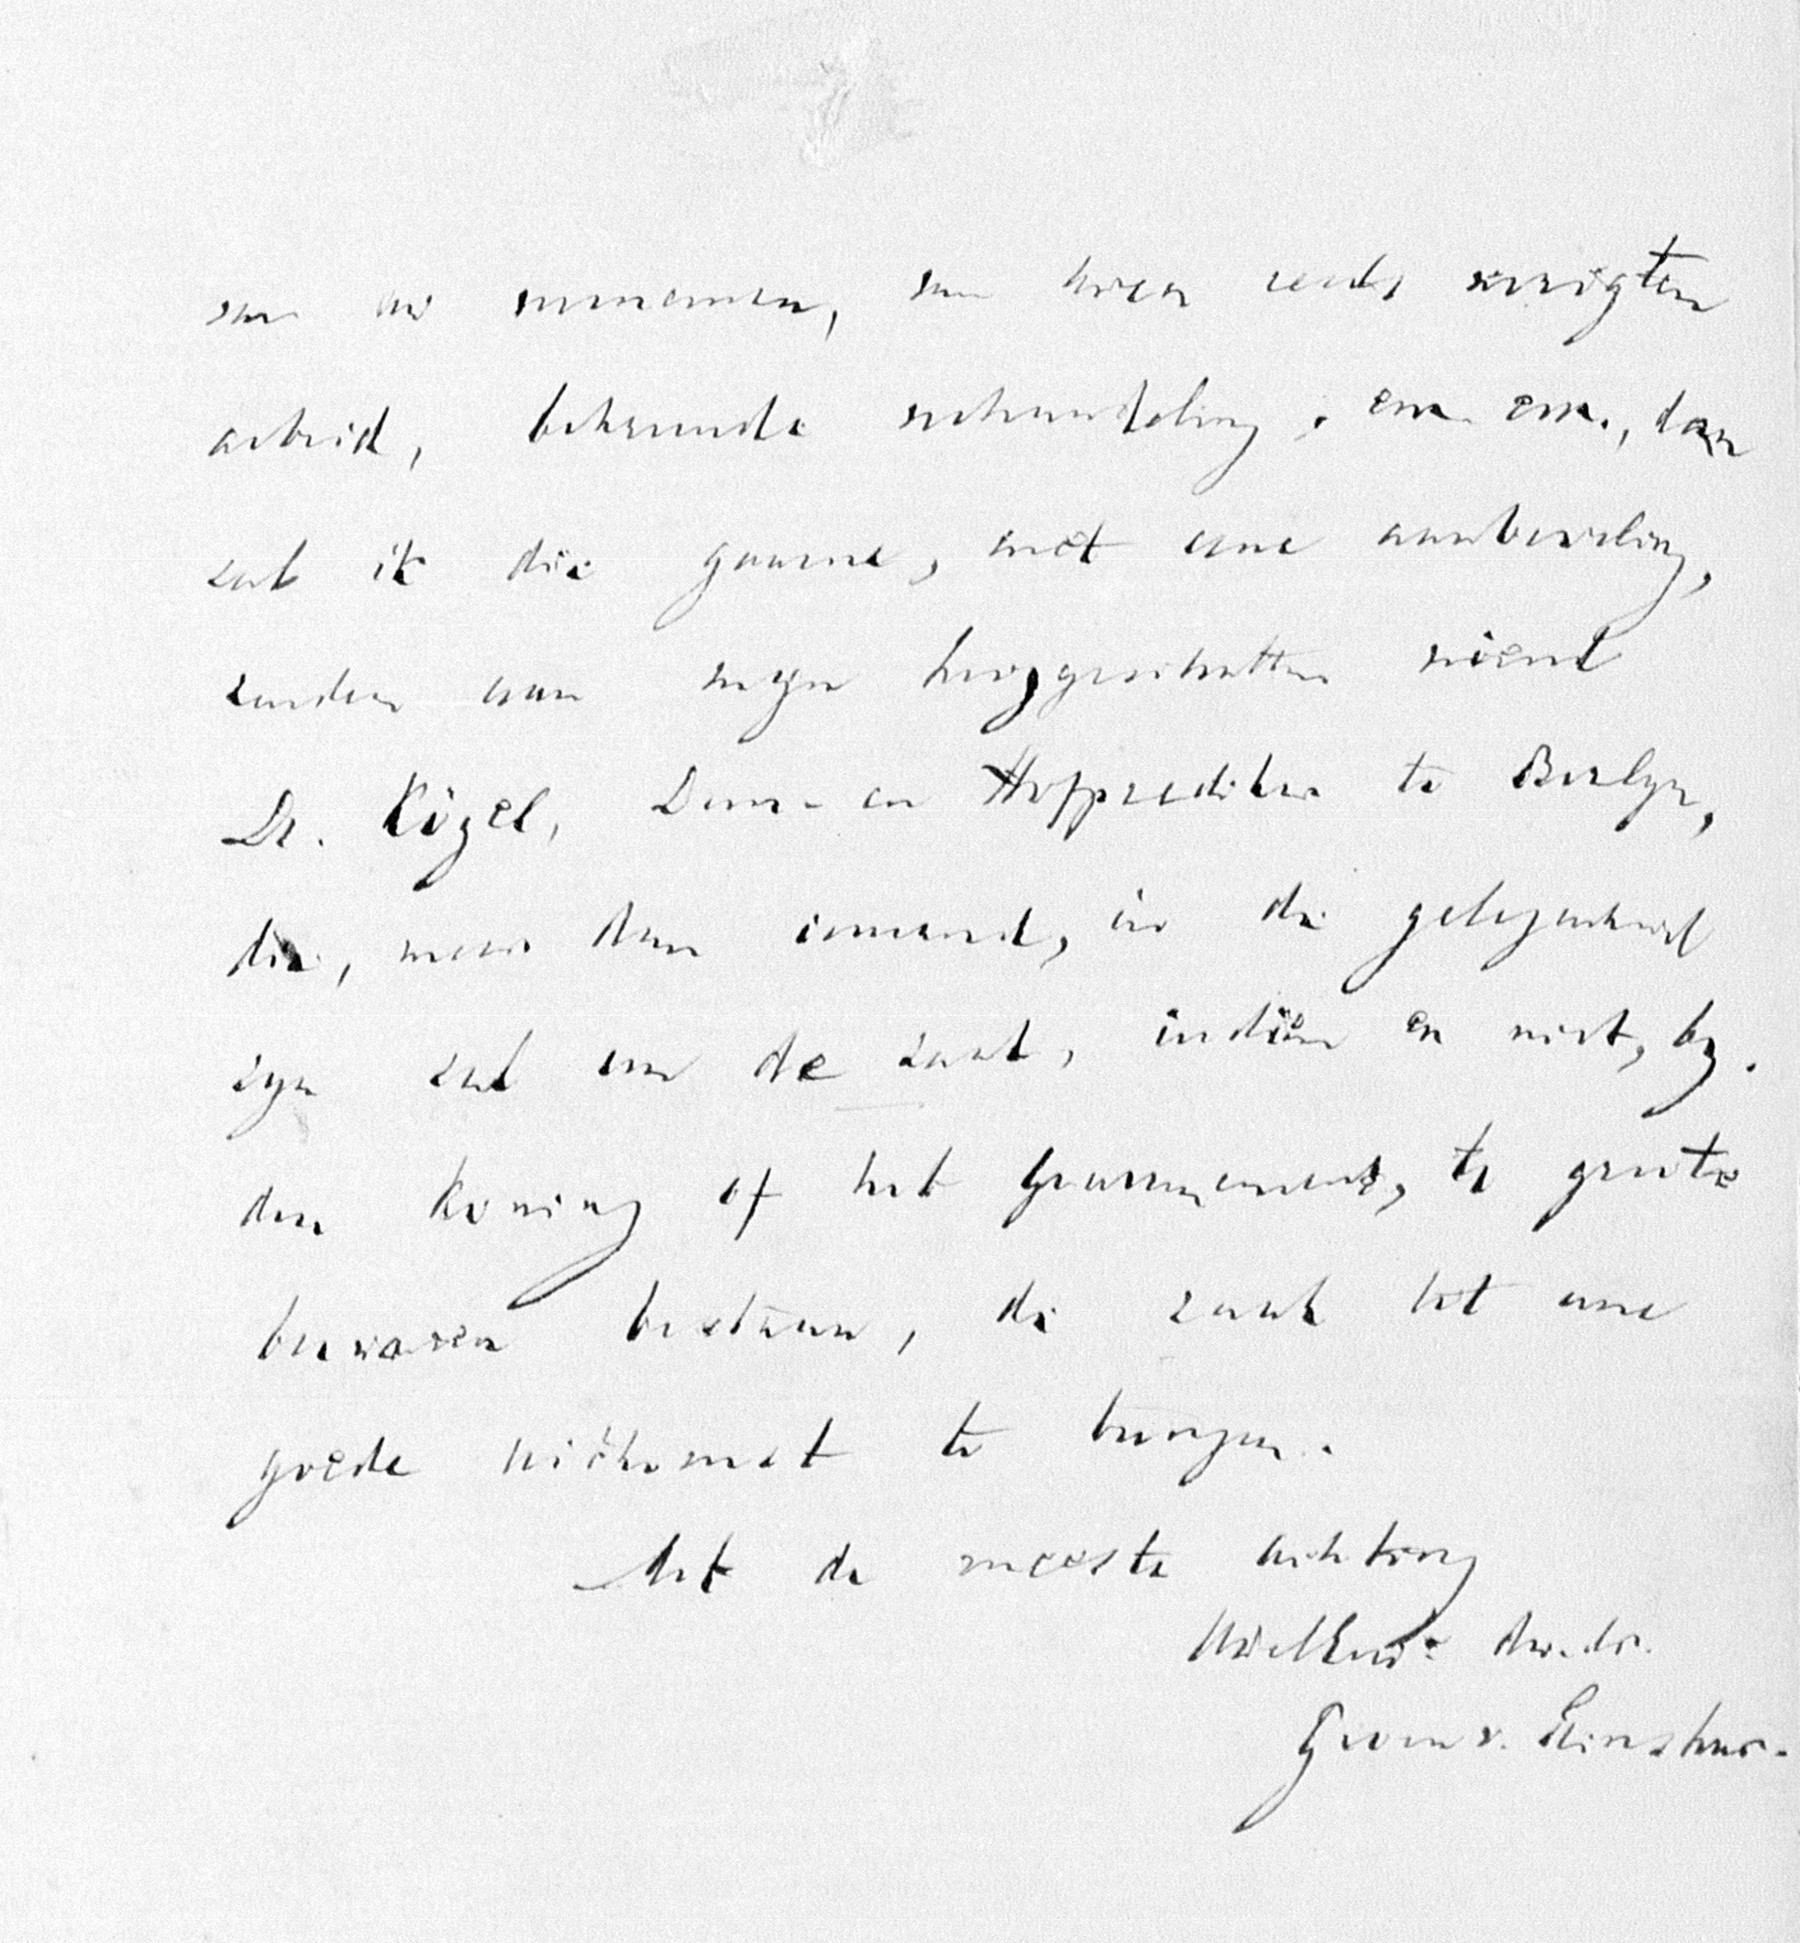 van uw voornemen, van uwen reeds verrigten
arbeid, bekomde behandeling, enz. enz., dan
zal ik die gaarne, met eene aanbeveling,
zenden aan mijn hooggeschatten vriend
Dr. Kögel, Dom- en Hofprediker te Berlyn,
die, meer dan iemand, in de gelegenheid
zyn zal om de zaak, indien er niet, by
den Koning of het Gouvernement, te groote
bezwaren bestaan, de zaak tot eene
goede uitkomst te brengen.
Met de meeste achting
UwelEerw. dw. dr.
Groen v. Prinsterer.